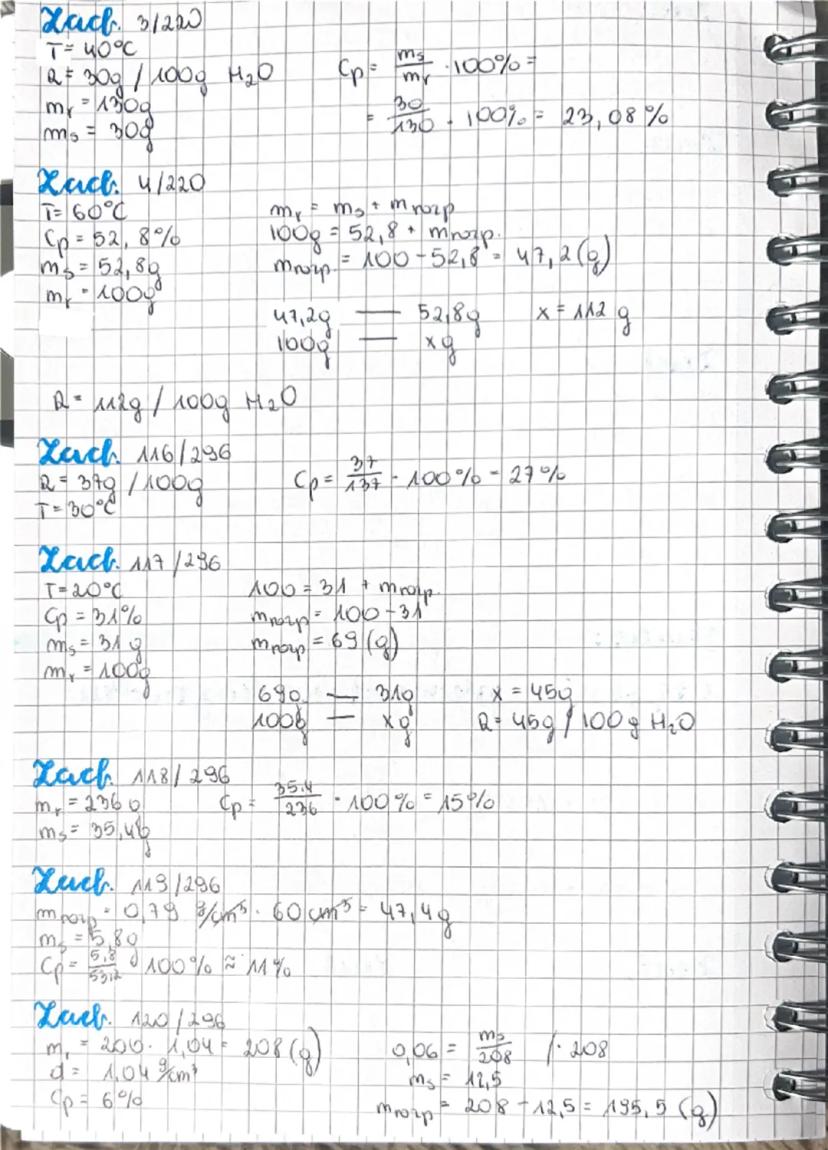 Zad. 3/220
T = 40°C
R = 30g / 100g H₂O
mr = 130g
ms = 30g
Cp = ms/mr · 100% =
= 30/130 · 100% = 23,08%
Zad. 4/220
T = 60°C
Cp = 52,8%
ms = 52,8g
mr = 100g
mr = ms + mrozp.
100g = 52,8 + mrozp.
mrozp. = 100 - 52,8 = 47,2 (g)
47,2g — 52,8g x = 112 g
100g — xg
R = 112g / 100g H₂O
Zad. 116/296
R = 37g / 100g
T = 30°C
Cp = 37/137 · 100% = 27%
Zad. 117/296
T = 20°C
Cp = 31%
ms = 31g
mr = 100g
100 = 31 + mrozp.
mrozp = 100 - 31
mrozp = 69 (g)
69g — 31g x = 45g
100g — xg R = 45g / 100g H₂O
Zad. 118/296
mr = 236g
ms = 35,4g
Cp = 35,4/236 · 100% = 15%
Zad. 119/296
mrozp = 0,79 g/cm³ · 60 cm³ = 47,4g
ms = 5,8g
Cp = 5,8/53,2 · 100% ≈ 11%
Zad. 120/296
mr = 200 · 1,04 = 208 (g)
d = 1,04 g/cm³
Cp = 6%
0,06 = ms/208 /· 208
ms = 12,5
mrozp = 208 - 12,5 = 195,5 (g)